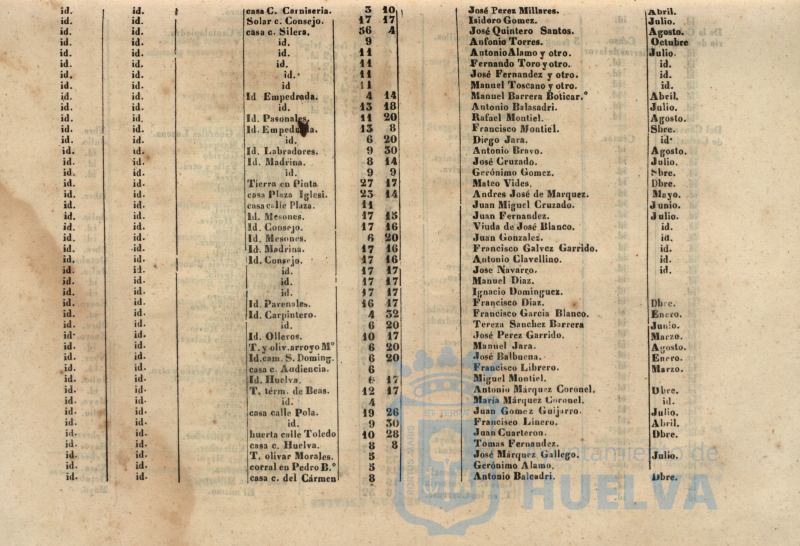 id. id. casa C. Carniseria. 3 10 José Perez Millares. Abril.
id. id. Solar c. Consejo. 17 17 Isidoro Gomez. Julio.
id. id. casa c. Silera. 56 4 José Quintero Santos. Agosto.
id. id. id. 9 Antonio Torres. Octubre
id. id. id. 11 Antonio Alamo y otro. Julio.
id. id. id. 11 Fernando Toro y otro. id.
id. id. id. 11 José Fernandez y otro. id.
id. id. id 11 Manuel Toscano y otro. id.
id. id. Id Empedrada. 4 14 Manuel Barrera Boticar.º Abril.
id. id. id. 13 18 Antonio Balasadri. Julio.
id. id. Id. Pasonales. 11 20 Rafael Montiel. Agosto.
id. id. Id. Empedrada. 13 8 Francisco Montiel. Sbre.
id. id. id. 6 20 Diego Jara. id.
id. id. Id. Labradores. 9 30 Antonio Bravo. Agosto.
id. id. Id. Madrina. 8 14 José Cruzado. Julio.
id. id. id. 9 9 Gerónimo Gomez. Sbre.
id. id. Tierra en Pinta 27 17 Mateo Vides. Dbre.
id. id. casa Plaza Iglesi. 23 14 Andres José de Marquez. Mayo.
id. id. casa calle Plaza. 11 Juan Miguel Cruzado. Junio.
id. id. Id. Mesones. 17 15 Juan Fernandez. Julio.
id. id. Id. Consejo. 17 16 Viuda de José Blanco. id.
id. id. Id. Mesones. 6 20 Juan Gonzalez. id.
id. id. Id. Madrina. 17 16 Francisco Galvez Garrido. id.
id. id. Id. Consejo. 17 16 Antonio Clavellino. id.
id. id. id. 17 17 Jose Navarro. id.
id. id. id. 17 17 Manuel Diaz.
id. id. id. 17 17 Ignacio Dominguez.
id. id. Id. Pavenales. 16 17 Francisco Diaz. Dbre.
id. id. Id. Carpintero. 4 32 Francisco Garcia Blanco. Enero.
id. id. id. 6 20 Tereza Sanchez Barrera Junio.
id. id. Id. Olleros. 10 17 José Perez Garrido. Marzo.
id. id. T. y oliv. arroyo Mº 6 20 Manuel Jara. Agosto.
id. id. Id. cam. S. Doming. 6 20 José Balbuena. Enero.
id. id. casa c. Audiencia. 6 Francisco Librero. Marzo.
id. id. Id. Huelva. 6 17 Miguel Montiel.
id. id. T. térm. de Beas. 12 17 Antonio Márquez Coronel. Dbre.
id. id. id. 4 María Márquez Coronel. id.
id. id. casa calle Pola. 19 26 Juan Gomez Guijarro. Julio.
id. id. id. 9 30 Francisco Linero. Abril.
id. id. huerta calle Toledo 10 28 Juan Cuarteron. Dbre.
id. id. casa c. Huelva. 8 8 Tomas Fernandez.
id. id. T. olivar Morales. 5 José Márquez Gallego. Julio.
id. id. corral en Pedro B.º 5 Gerónimo Alamo.
id. id. casa c. del Cármen 8 Antonio Balcadri. Dbre.
Ayuntamiento de
HUELVA